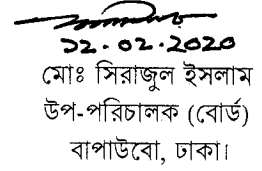 ১২.০২.2020
মোঃ সিরাজুল ইসলাম
উপ-পরিচালক (বোর্ড)
বাপাউবো, ঢাকা।